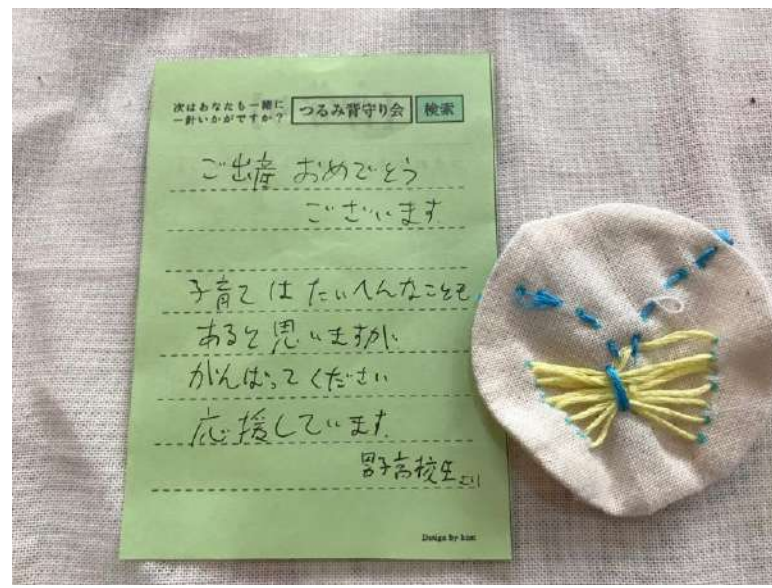 次はあなたも一緒に
一針いかがですか？ つるみ背守り会 検索
ご出産 おめでとう
ございます
子育ては たいへんなことも
あると思いますが
がんばってください
応援しています
男子高校生より
Design by